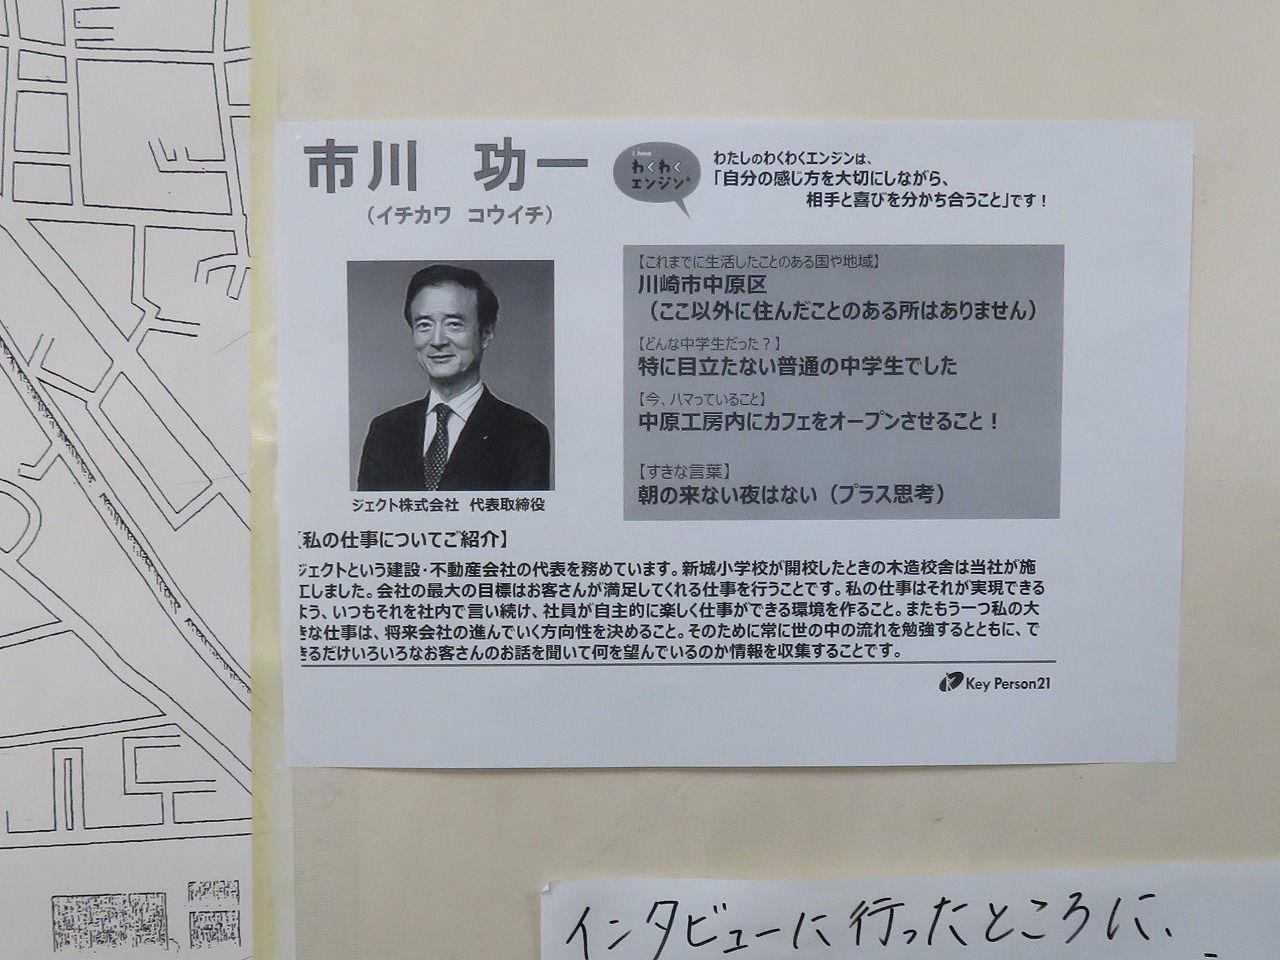 市川 功一
（イチカワ コウイチ）
I have
わくわく
エンジン®
わたしのわくわくエンジンは、
「自分の感じ方を大切にしながら、
相手と喜びを分かち合うこと」です！
【これまでに生活したことのある国や地域】
川崎市中原区
（ここ以外に住んだことのある所はありません）
【どんな中学生だった？】
特に目立たない普通の中学生でした
【今、ハマっていること】
中原工房内にカフェをオープンさせること！
【すきな言葉】
朝の来ない夜はない（プラス思考）
ジェクト株式会社 代表取締役
【私の仕事についてご紹介】
ジェクトという建設・不動産会社の代表を務めています。新城小学校が開校したときの木造校舎は当社が施
工しました。会社の最大の目標はお客さんが満足してくれる仕事を行うことです。私の仕事はそれが実現できる
よう、いつもそれを社内で言い続け、社員が自主的に楽しく仕事ができる環境を作ること。またもう一つ私の大
きな仕事は、将来会社の進んでいく方向性を決めること。そのために常に世の中の流れを勉強するとともに、で
きるだけいろいろなお客さんのお話を聞いて何を望んでいるのか情報を収集することです。
Key Person21
インタビューに行ったところに、